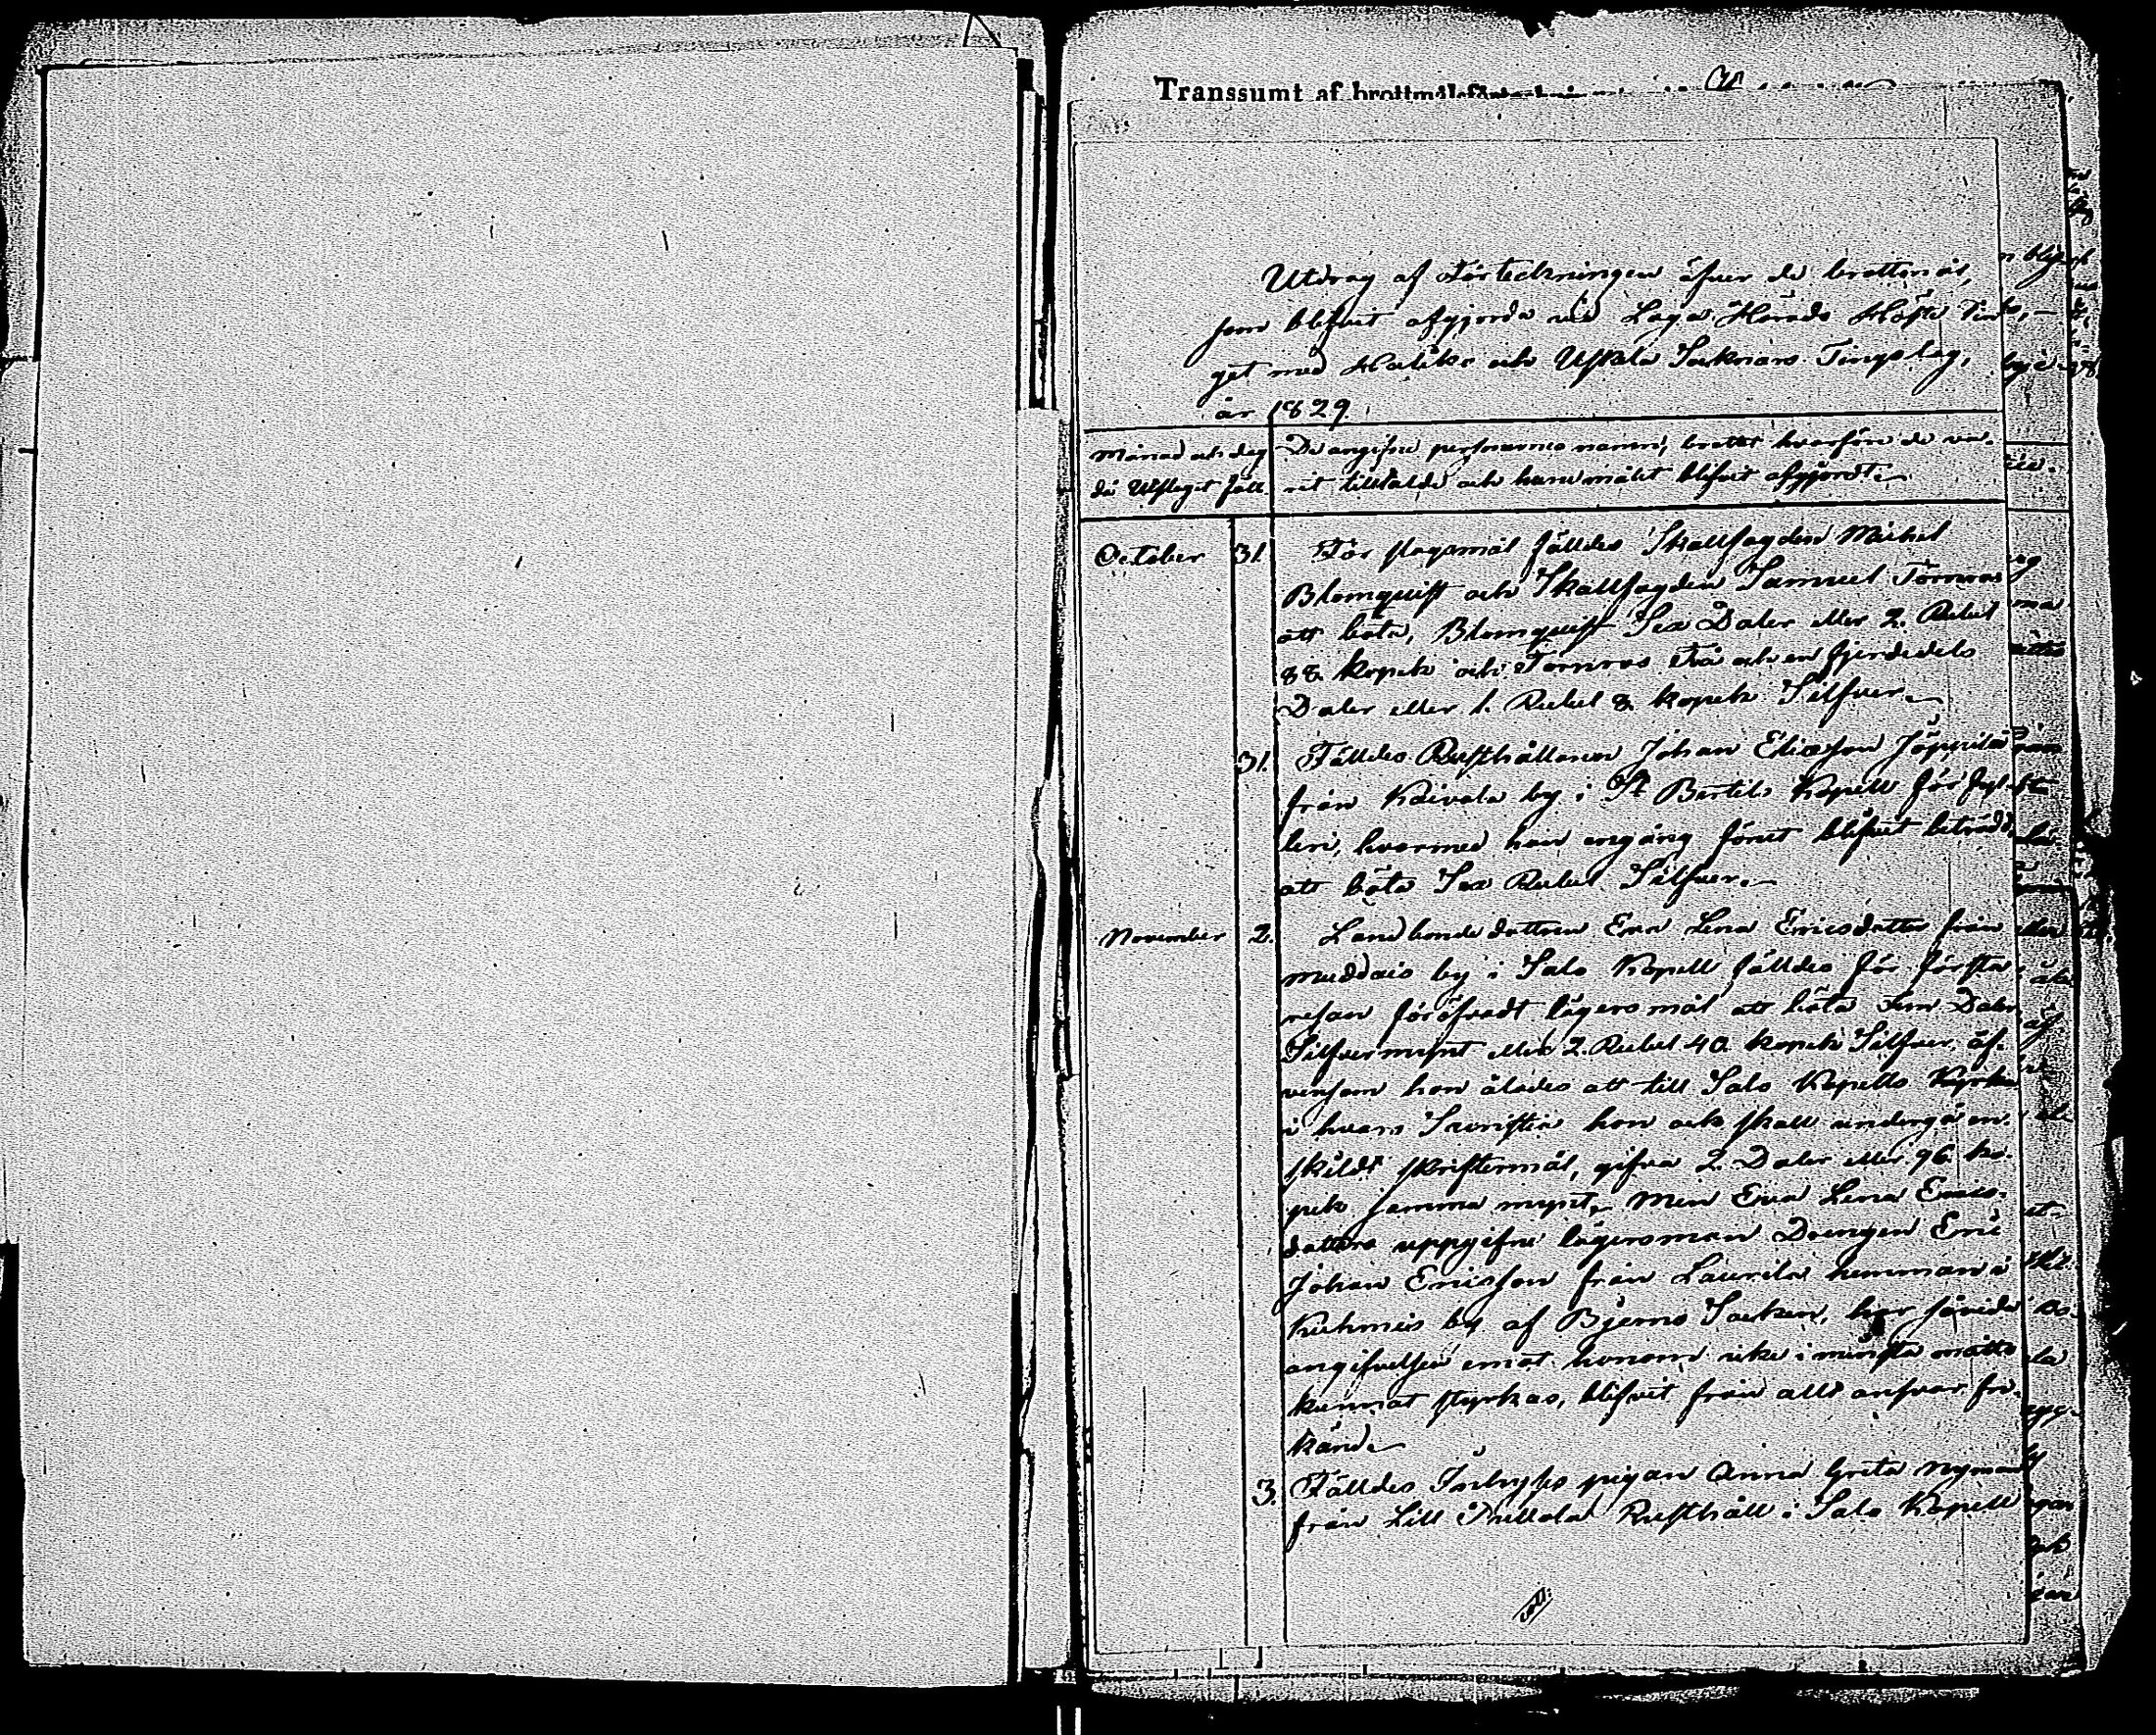 Transsumt af
Utdrag af Förteckningen öfver de brottmål,
som blifvit afgjorda vid Laga Härads Höste Tin-
get med Halikko och Uskela Socknars Tingslag,
år 1829.
Månad och dag
då Utslaget fäll.
De angifne personernes namn, brottet hvarföre de va-
rit tilltalde och huru målet blifvit afgjordt.
October 31. För slagsmål fälldes Skallfogden Michel
Blomquist och Skallfogden Samuel Törnroos
att böta, Blomquist Sex Daler eller 2. Rubel
88. kopek och Törnroos Två och en fjerdedels
Daler eller 1. Rubel 8. kopek Silfver.
31. Fälldes Rusthållaren Johan Eliasson
från Kaivola by i St Bertils Kapell för fyl-
leri, hvarmed han engång förut blifvit beträdd,
att böta Sex Rubel Silfver.
November 2. Landbonde dottren Eva Lena Ericsdotter från
Muddais by i Salo Kapell fälldes för första
resan föröfvadt lägersmål att böta Fem Daler
Silfvermynt eller 2. Rubel 40. kopek Silfver, äf-
vensom hon ålades att till Salo Kapells Kyrka
i hvars Sacristia hon ock skall undergå en-
skildt skriftermål, gifva 2. Daler eller 96. ko-
pek samma mynt, Men Eva Lena Erics-
dotters uppgifne lägersman Drengen Eric
Johan Ericsson från Laurila hemman i
by af Bjerno Socken, har
angifvelsen emot honom icke i minsta måtto
kunnat styrkas, blifvit från allt ansvar fri-
känd.
3. Fälldes Inhyses pigan Anna Greta Nyman
från Lill Rusthåll i Salo Kapell